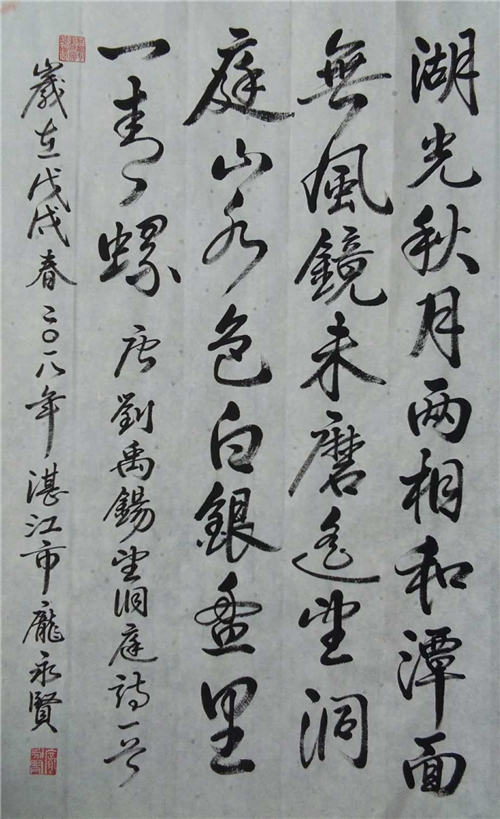 湖光秋月两相和潭面
無風鏡未磨遥望洞
庭山水色白銀盘里
一青螺 唐劉禹錫望洞庭詩一首
歲在戊戌春二〇一八年湛江市龐永賢